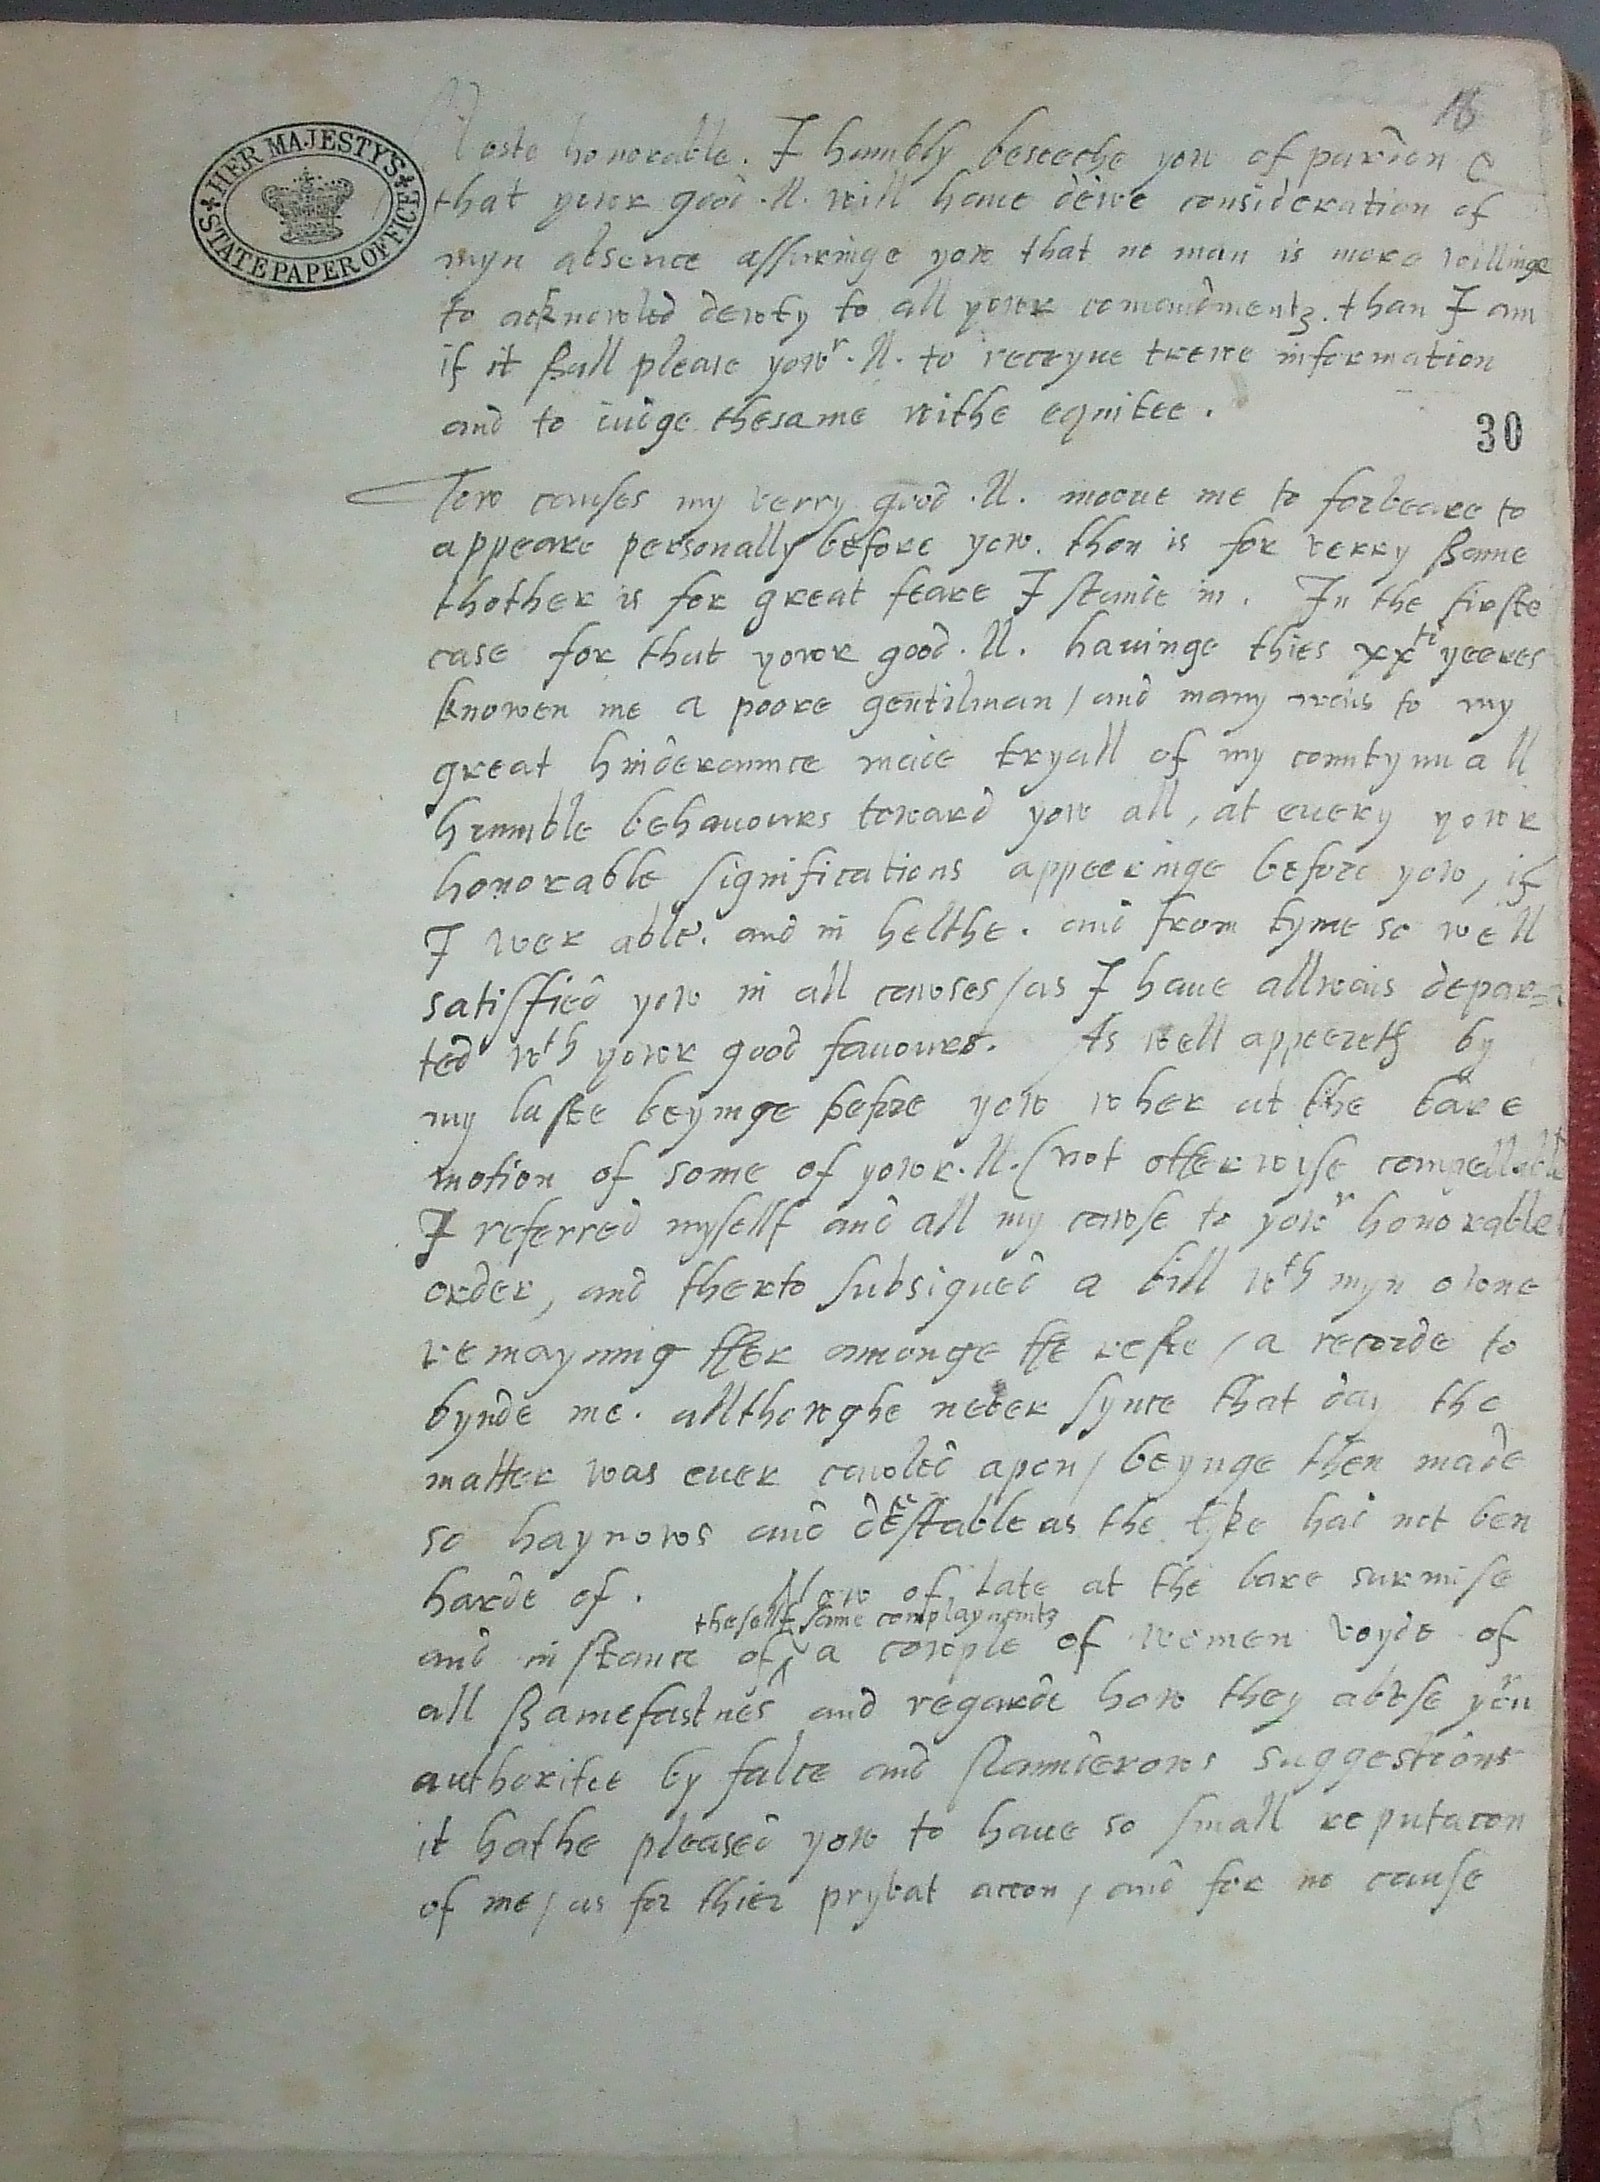 16
HER MAJESTYS
STATE PAPER OFFICE
Moste honorable. I humbly beseeche you of pardon &
that yowr good .ll. will haue dewe consideration of
myn absence assuringe yow that no man is more willinge
to acknowled dewty to all yowr comandmentz. than I am
if it shall please yowr .ll. to receyue trewe information
and to iudge thesame withe equitee.
30
Tow causes my verry good .ll. mooue me to forbeare to
appeare personally before yow. thon is for verry shame
thother is for great feare I stande in. In the firste
case for that yowr good .ll. hauinge thies xxti yeeres
knowen me a poore gentilman / and many wais to my
great hinderaunce made tryall of my contynuall
humble behauours toward yow all, at euery yowr
honorable significations appeeringe before yow, if
I wer able. and in helthe. and from tyme so well
satisfied yow in all cawses / as I haue allwais depar=
ted wth yowr good fauours. As well appeereth by
my laste beynge before yow wher at the bare
motion of some of yowr .ll. (not otherwyse compellable
I referred myself and all my cawse to yowr honorable
order, and therto subsigned a bill wth myn owne
remaynnig ther amonge the reste / a recorde to
bynde me. allthowghe never synce that day the
matter was euer cawled apon / beynge then made
so haynows and detestable as the lyke had not ben
harde of. Now of late at the bare surmise
theself same complayaintz
and instance of a cowple of women voyde of
all shamefastnes and regarde how they abvse yowr
authoritee by falce and slaunderows suggestions
it hathe pleased yow to haue so small reputacon
of me / as for thier pryvat accon, and for no cause